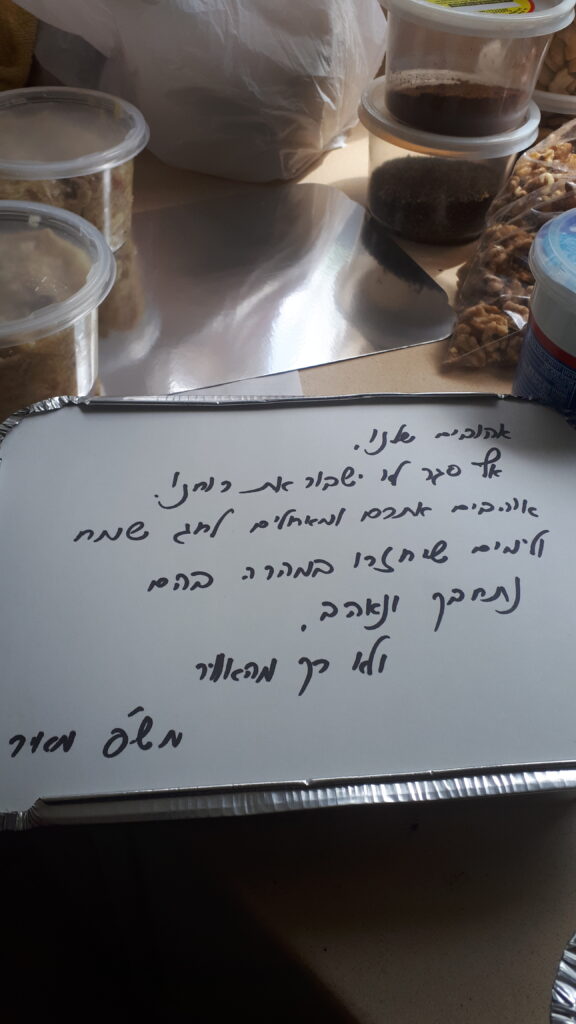 אהובים שלנו.
אף סגר לא ישבור את רוחנו.
אוהבים אתכם ומאחלים לחג שמח
ולימים שיחזרו במהרה בהם
נתחבק ונאהב.
ולא רק מהאוויר
מש׳פ מאיר